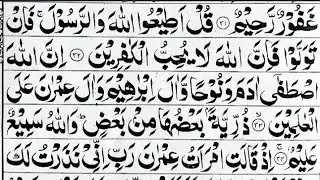 غَفُوْرٌ رَّحِيْمٌ ۝۳۱ قُلْ اَطِيْعُوا اللّٰهَ وَالرَّسُوْلَ ۚ فَاِنْ
تَوَلَّوْا فَاِنَّ اللّٰهَ لَا يُحِبُّ الْكٰفِرِيْنَ ۝۳۲ اِنَّ اللّٰهَ
اصْطَفٰٓى اٰدَمَ وَنُوْحًا وَّاٰلَ اِبْرٰهِيْمَ وَاٰلَ عِمْرٰنَ عَلَى
الْعٰلَمِيْنَ ۝۳۳ ذُرِّيَّةًۢ بَعْضُهَا مِنْۢ بَعْضٍ ؕ وَاللّٰهُ سَمِيْعٌ
عَلِيْمٌ ۝۳۴ اِذْ قَالَتِ امْرَاَتُ عِمْرٰنَ رَبِّ اِنِّيْ نَذَرْتُ لَكَ